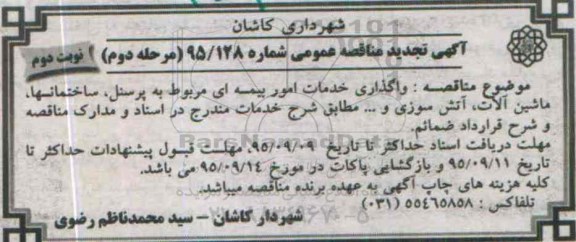 شهرداری کاشان
آگهی تجدید مناقصه عمومی شماره ۹۵/۱۲۸ (مرحله دوم) نوبت دوم
موضوع مناقصه : واگذاری خدمات امور بیمه ای مربوط به پرسنل، ساختمانها،
ماشین آلات، آتش سوزی و ... مطابق شرح خدمات مندرج در اسناد و مدارک مناقصه
و شرح قرارداد ضمائم.
مهلت دریافت اسناد حداکثر تا تاریخ ۹۵/۰۹/۰۹، مهلت قبول پیشنهادات حداکثر تا
تاریخ ۹۵/۰۹/۱۱ و بازگشایی پاکات در مورخ ۹۵/۰۹/۱۴ می باشد.
کلیه هزینه های چاپ آگهی به عهده برنده مناقصه میباشد.
تلفاکس : ۵۵۴۶۵۸۵۸ (۰۳۱)
شهردار کاشان – سید محمدناظم رضوی